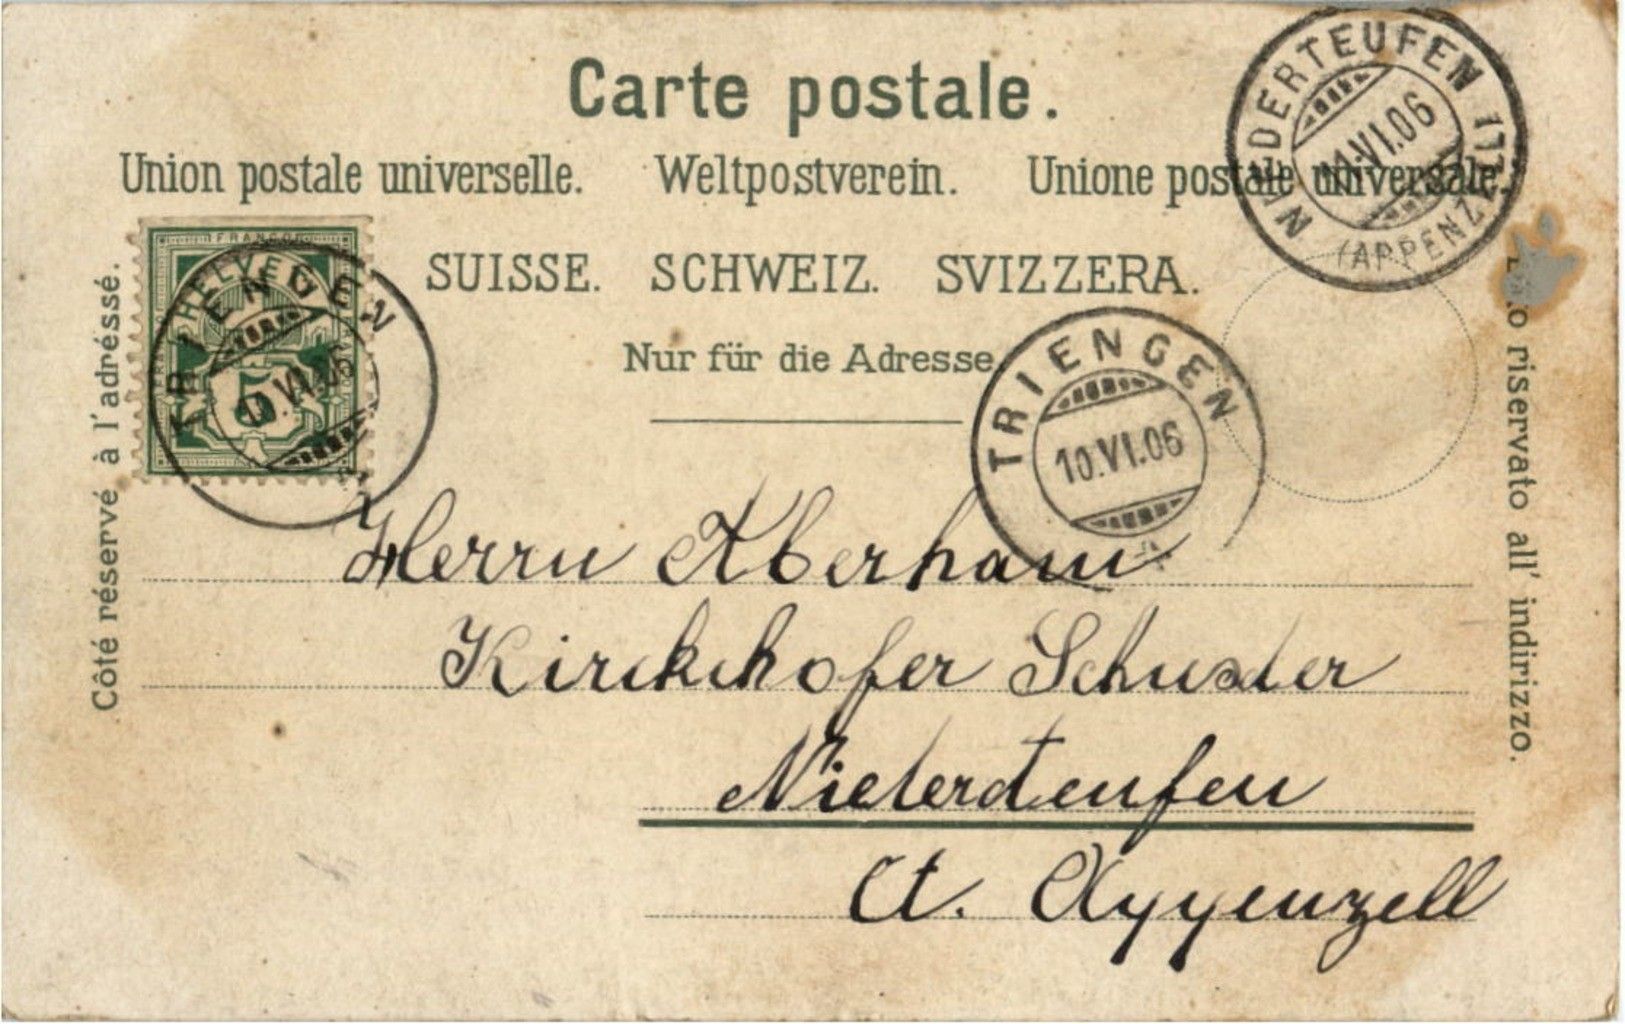 Carte postale.
Union postale universelle. Weltpostverein. Unione postale universale.
SUISSE. SCHWEIZ. SVIZZERA.
Nur für die Adresse
Côté réservé à l'adréssé.
riservato all' indirizzo.
NIEDERTEUFEN
11.VI.06
(APPENZ.)
FRANCO
HELVETIA
5
TRIENGEN
10.VI.06
TRIENGEN
10.VI.06
Herrn Aberham
Kirchhofer Schuster
Niederteufen
Ct. Appenzell